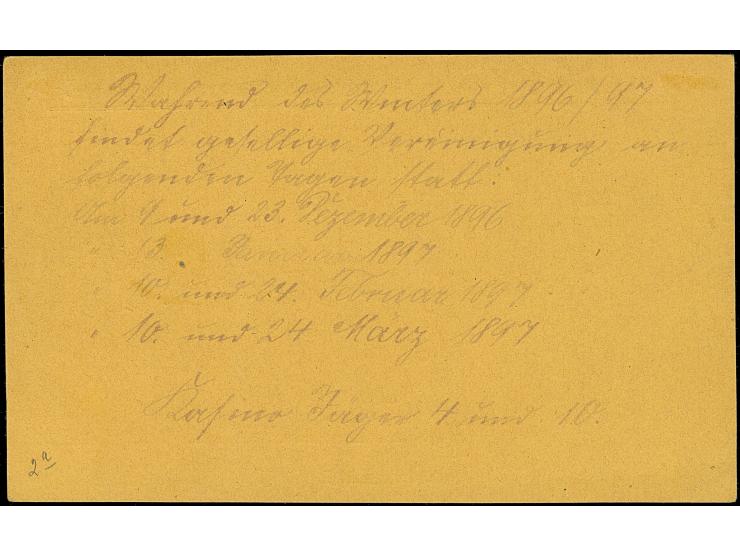 Während des Winters 1896/97
findet gesellige Vereinigung an
folgenden Tagen statt:
Am 9 und 23. Dezember 1896
" 13. Januar 1897
" 10. und 24. Februar 1897
" 10. und 24 März 1897
Kasino Jäger 4 und 10.
2a